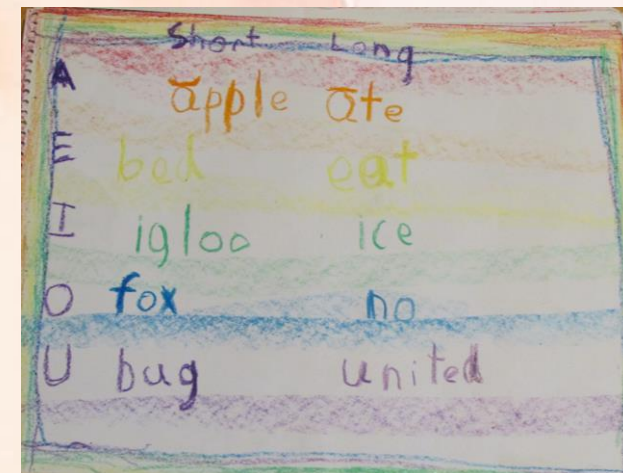 Short Long
A āpple āte
E bed eat
I igloo ice
O fox no
U bug united